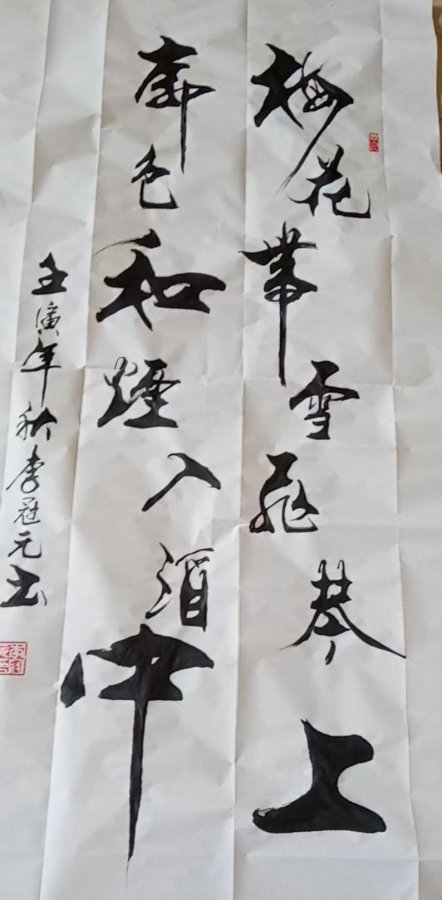 梅花帶雪飛琴上
柳色和煙入酒中
壬寅年秋李冠元书